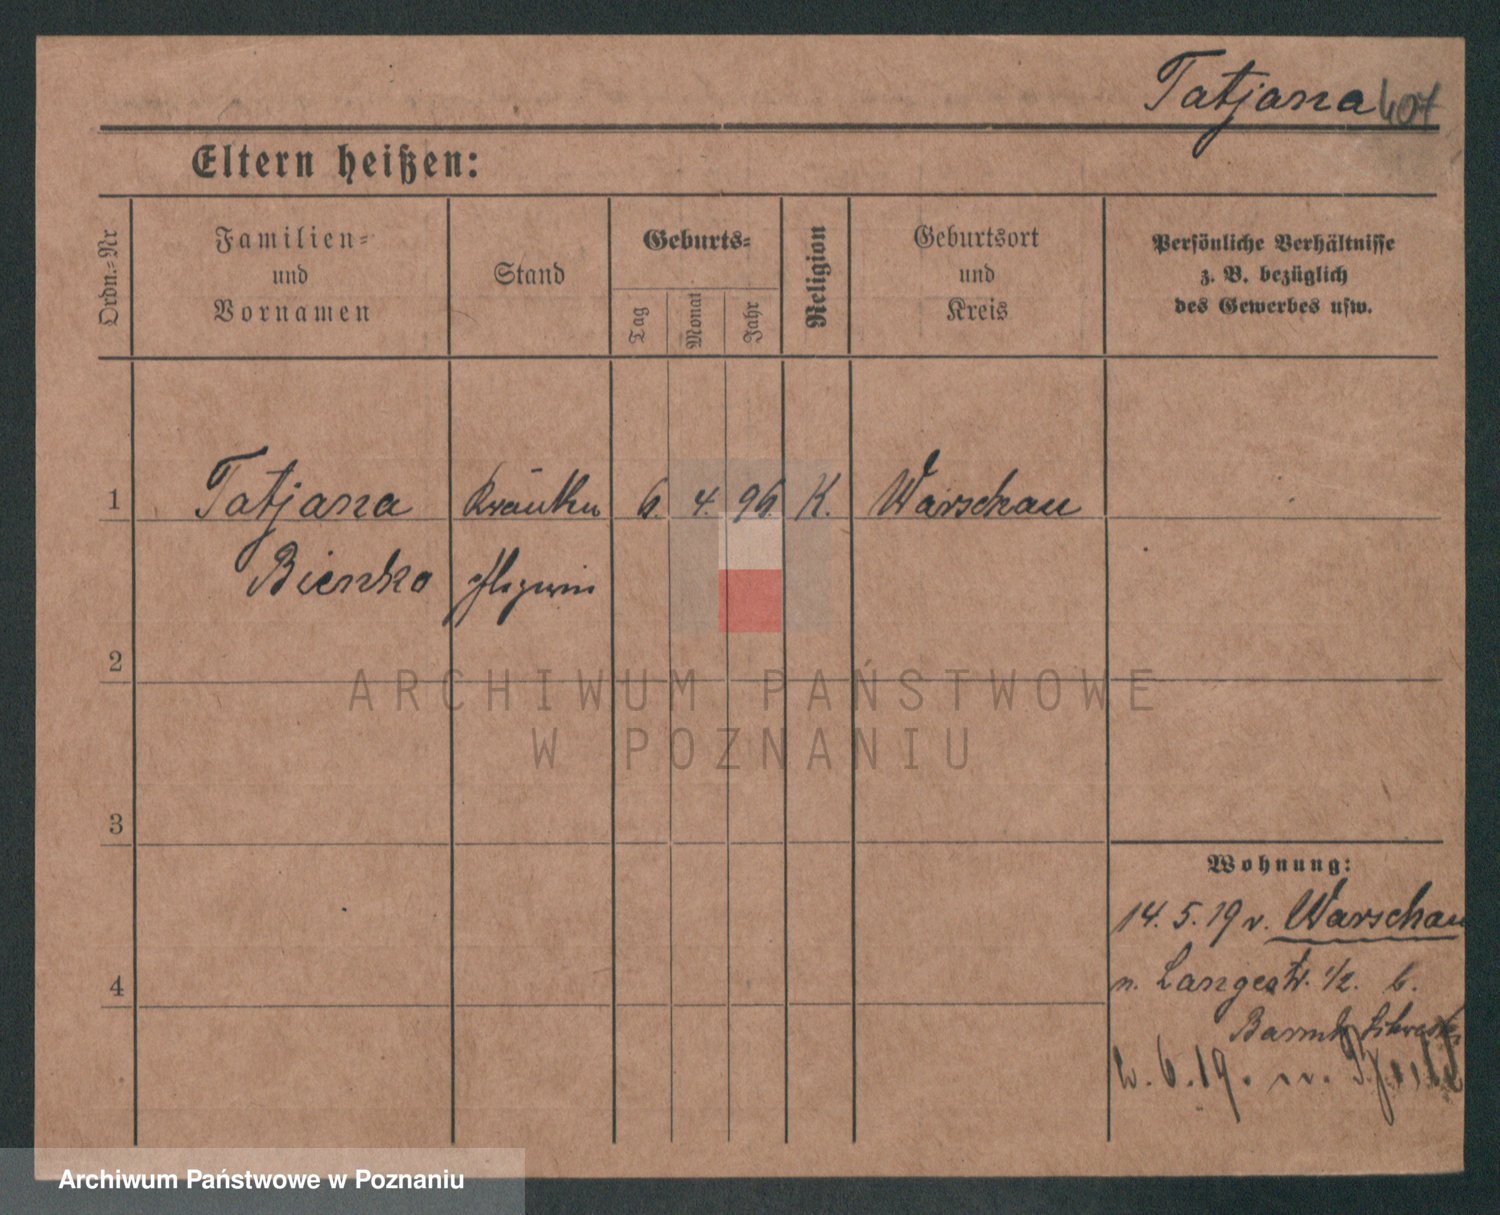 Tatjana 407
Eltern heißen:
Ordn.-Nr
Familien-
und
Vornamen
Stand
Geburts-
Tag
Monat
Jahr
Religion
Geburtsort
und
Kreis
Persönliche Verhältnisse
z. B. bezüglich
des Gewerbes usw.
1 Tatjana Kranken 6. 4. 96. K. Warschau
Bienko pflegerin
2
ARCHIWUM PAŃSTWOWE
W POZNANIU
3
Wohnung:
14. 5. 19 v. Warschau
4
n. Langestr. 1/2. b.
6. 19. n.
Archiwum Państwowe w Poznaniu